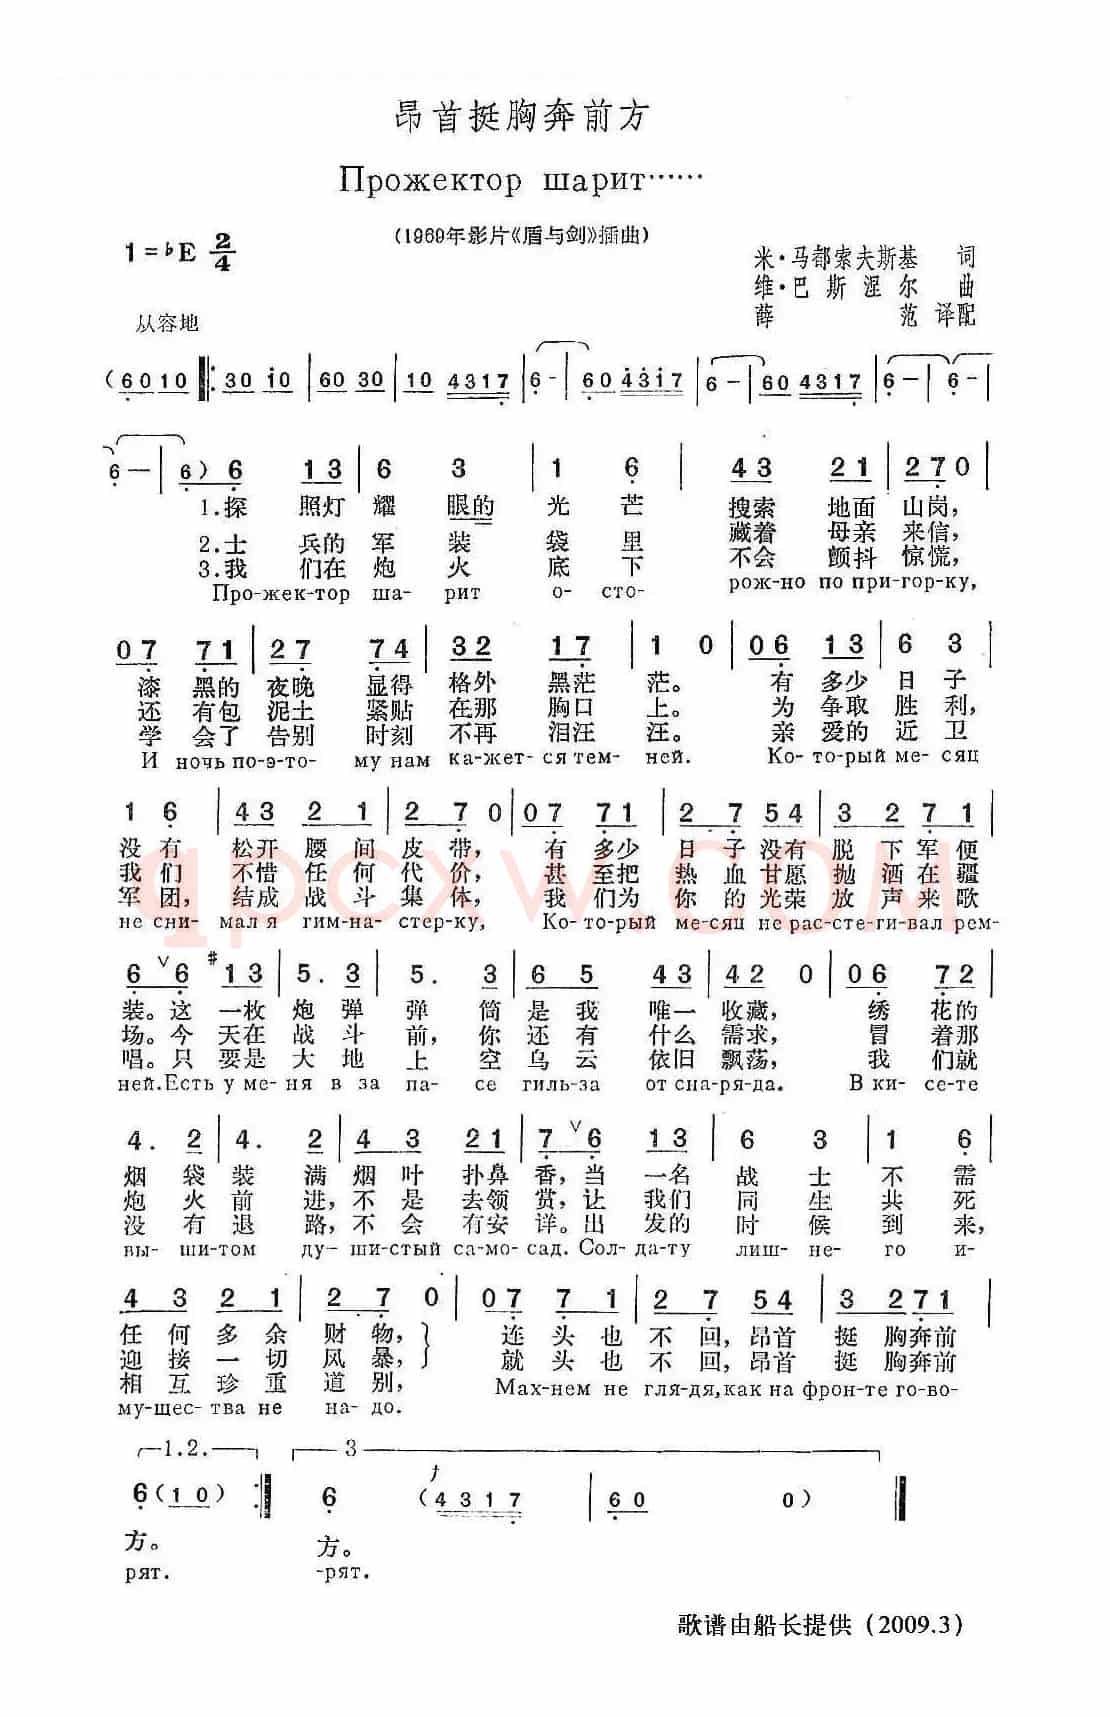 昂首挺胸奔前方
Прожектор шарит……
(1969年影片《盾与剑》插曲)
1=♭E 2/4
米·马都索夫斯基 词
维·巴斯涅尔 曲
薛范 译配
从容地
(6010 ‖: 30 i0 | 60 30 | 10 4317 | 6 - | 60 4317 | 6 — | 60 4317 | 6 — | 6 - |
6 — | 6) 6 13 | 6 3 | 1 6 | 43 21 | 270 |
1.探 照灯 耀 眼的 光 芒 搜索 地面 山岗,
2.士 兵的 军 装 袋 里 藏着 母亲 来信,
3.我 们在 炮 火 底 下 不会 颤抖 惊慌,
Про-жек-тор ша- рит о- сто- рож-но по при-гор-ку,
07 71 | 27 74 | 32 17 | 1 0 | 06 13 | 6 3 |
漆 黑的 夜晚 显得 格外 黑茫 茫。 有 多少 日 子
还 有包 泥土 紧贴 在那 胸口 上。 为 争取 胜 利,
学 会了 告别 时刻 不再 泪汪 汪。 亲 爱的 近 卫
И ночь по-э-то- му нам ка-жет-ся тем- ней. Ко- то-рый ме- сяц
1 6 | 43 2 1 | 2 7 0 | 07 71 | 2 7 54 | 3 2 7 1 |
没 有 松开 腰 间 皮 带, 有 多少 日 子 没有 脱 下 军 便
我 们 不惜 任 何 代 价, 甚 至把 热 血 甘愿 抛 洒 在 疆
军 团, 结成 战 斗 集 体, 我 们为 你 的 光荣 放 声 来 歌
не сни- мал я гим-на- стер-ку, Ко- то-рый ме-сяц не рас-сте-ги-вал рем-
6 ∨ 6 #13 | 5. 3 | 5. 3 | 6 5 43 | 42 0 | 06 72 |
装。这 一枚 炮 弹 弹 筒 是 我 唯一 收藏, 绣 花的
场。今 天在 战 斗 前, 你 还 有 什么 需求, 冒 着那
唱。只 要是 大 地 上 空 乌 云 依旧 飘荡, 我 们就
ней.Есть у ме- ня в за па- се гиль-за от сна-ря-да. В ки- се-те
4. 2 | 4. 2 | 4 3 21 | 7 ∨ 6 13 | 6 3 | 1 6 |
烟 袋 装 满 烟 叶 扑鼻 香, 当 一名 战 士 不 需
炮 火 前 进, 不 是 去领 赏, 让 我们 同 生 共 死
没 有 退 路, 不 会 有安 详。出 发的 时 候 到 来,
вы- ши-том ду- ши-стый са-мо- сад. Сол- да-ту лиш- не- го и-
4 3 2 1 | 2 7 0 | 07 7 1 | 2 7 54 | 3 2 7 1 |
任 何 多 余 财 物, 连 头 也 不 回, 昂首 挺 胸奔前
迎 接 一 切 风 暴, 就 头 也 不 回, 昂首 挺 胸奔前
相 互 珍 重 道 别,
му-ще-ства не на- до. Мах-нем не гля-дя,как на фрон-те го-во-
1.2. 3
6 (1 0) :‖ 6 (4 3 1 7 | 6 0 0) ‖
方。 方。
рят. -рят.
歌谱由船长提供（2009.3）
qpcxw.com